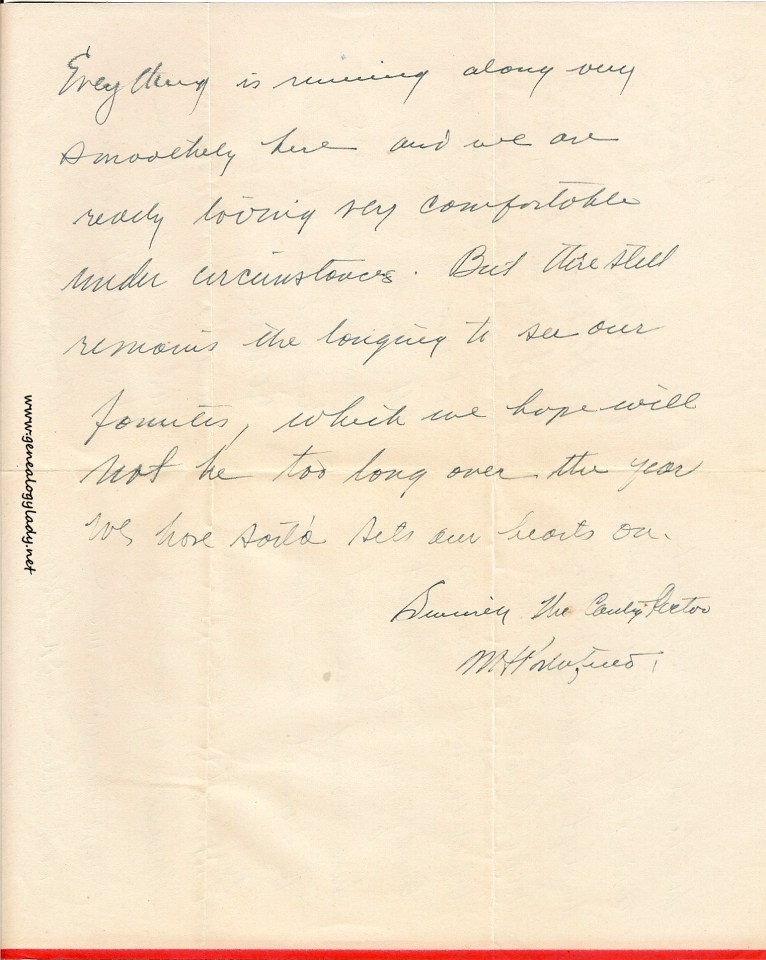 Everything is running along very
smoothely here and we are
really living very comfortable
under circumstances. But there still
remains the longing to see our
families, which we hope will
not be too long over the year
We have sorta sets our hearts on.
Sincerely The
www.genealogylady.net